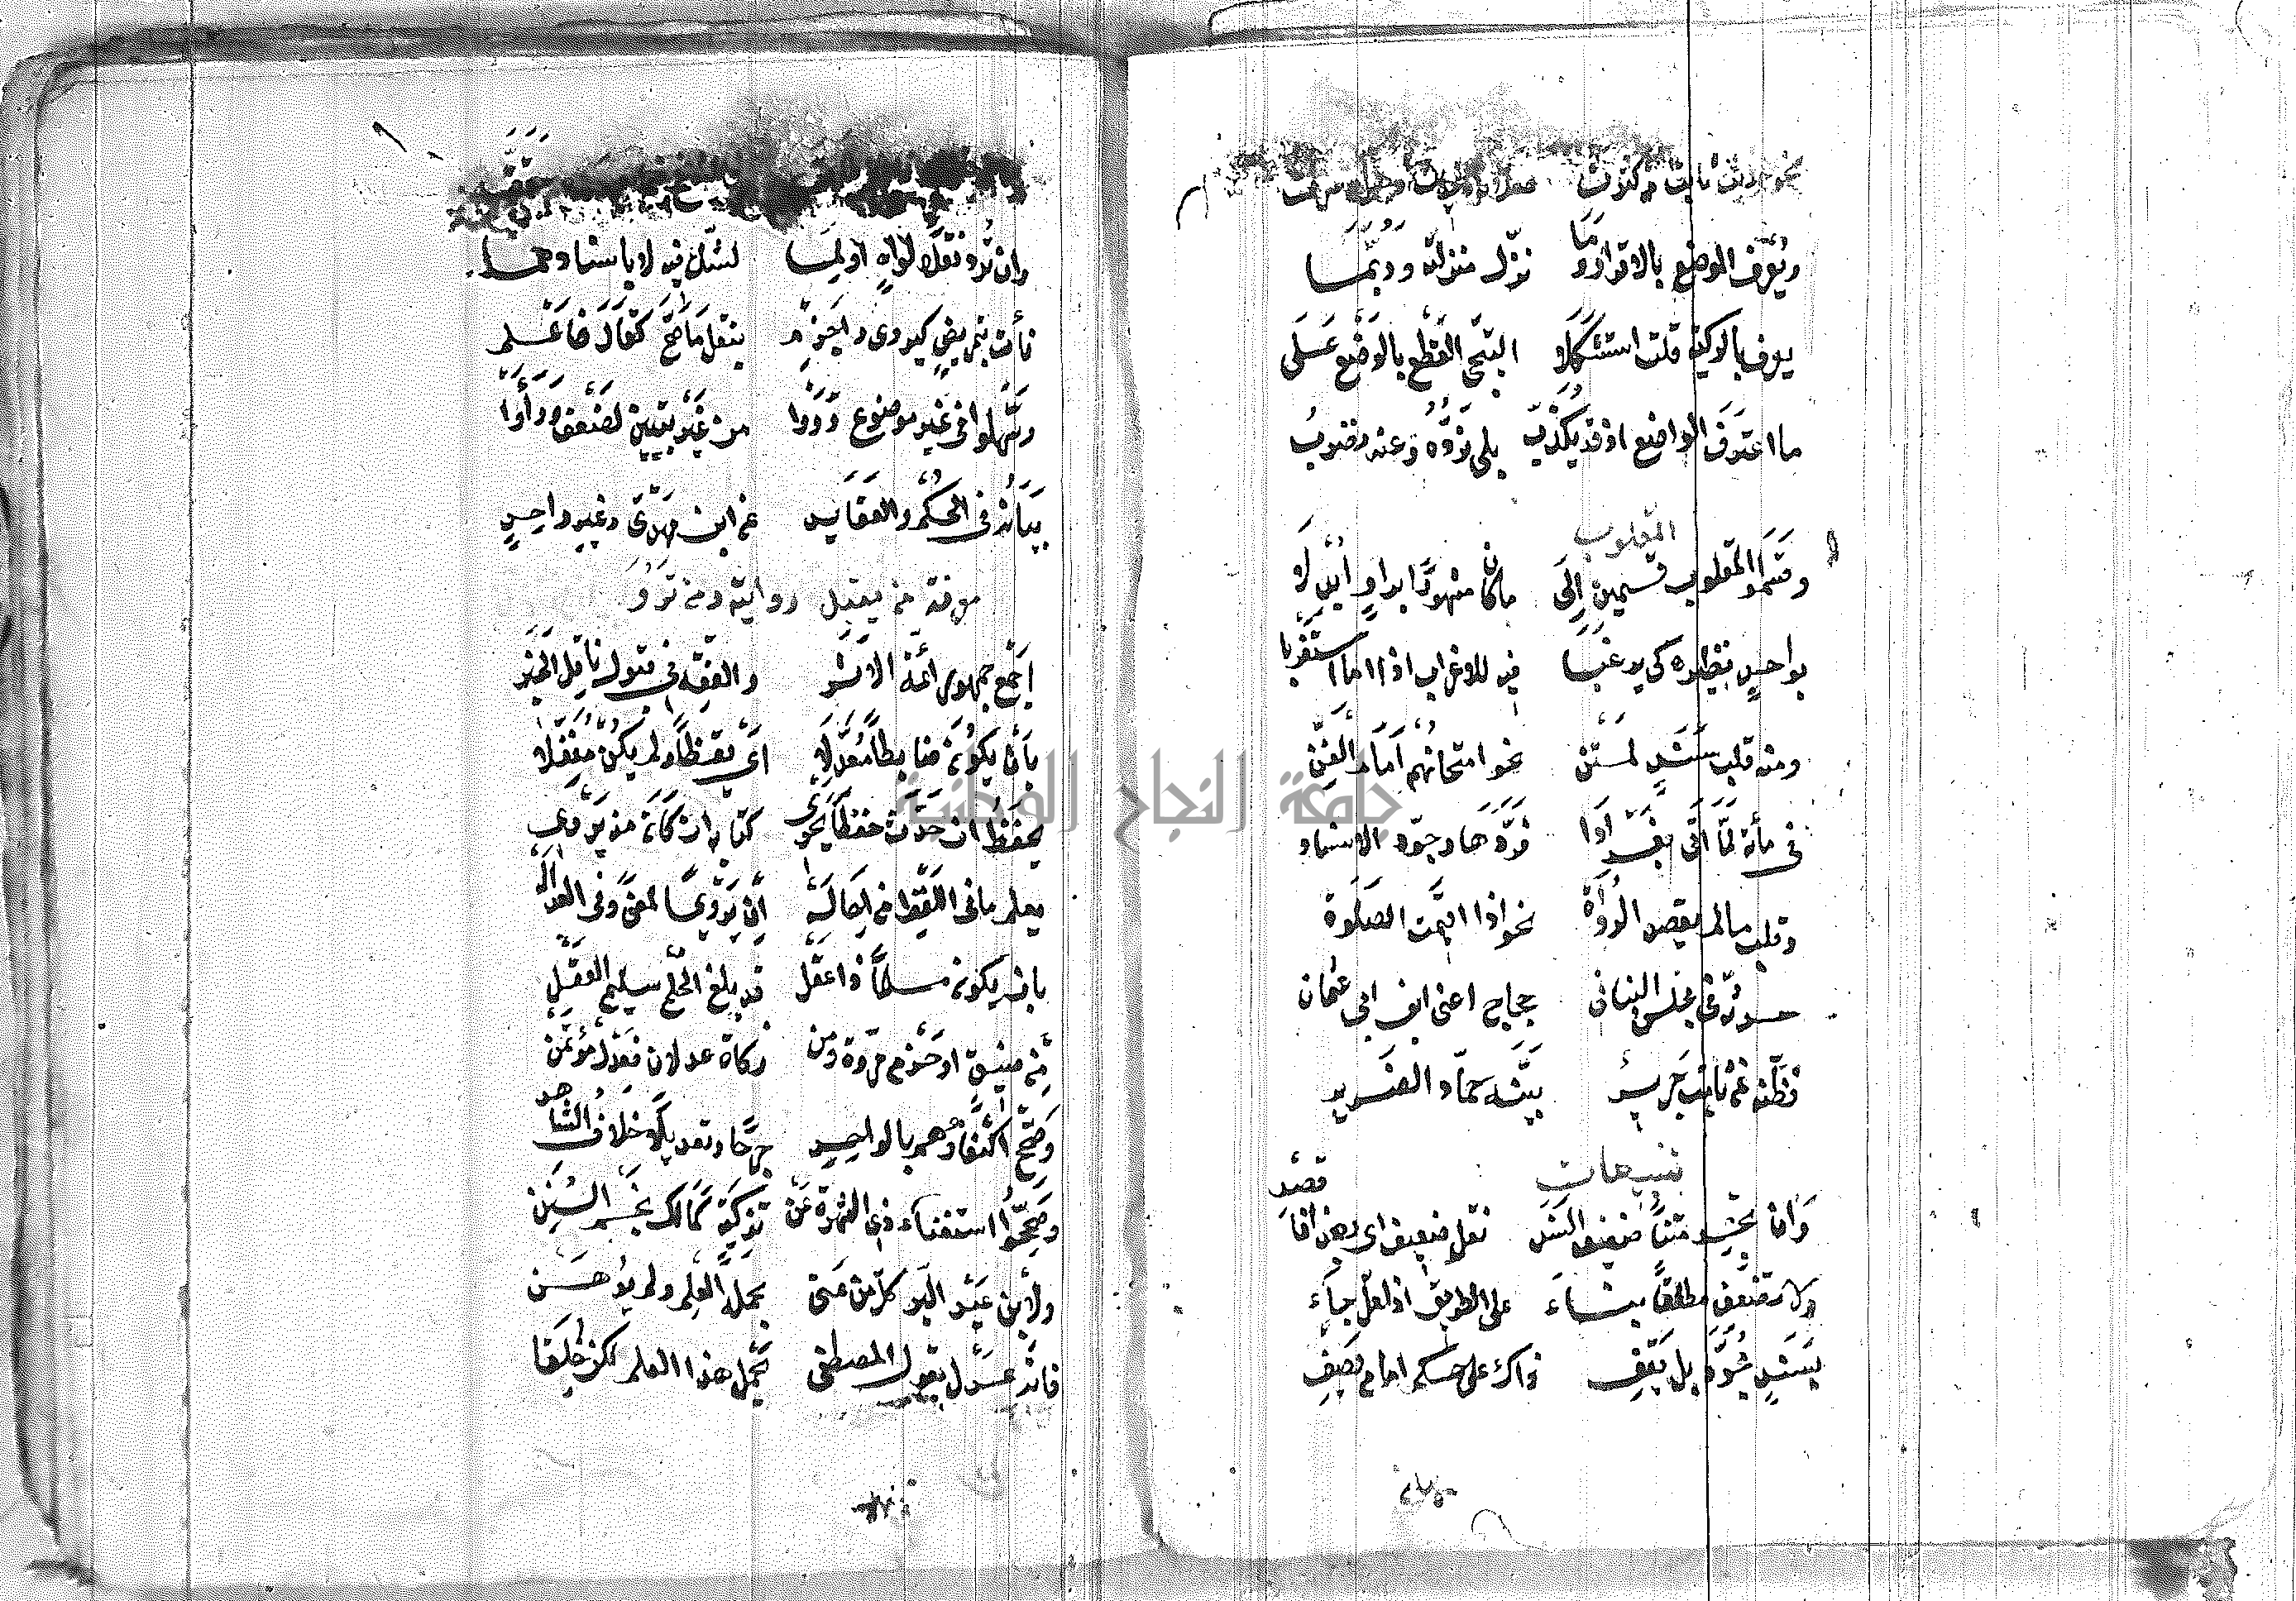 نحو حديث ثابت من كثرت
ويعرف الوضع بالاقرار وما نزل منزلته وربما
يعرف بالركة قلت استشكلا الثبجي القطع بالوضع على
ما اعترف الواضع اذ قد يكذب بلى نرده وعنه نضرب
المقلوب
وقسموا المقلوب قسمين إلى ما كان مشهورا براو ابدلا
بواحد نظيره كي يرغبا فيه للاغراب اذا ما استغربا
ومنه قلب سند لمتن نحو امتحانهم امام الفن
في مائة لما اتى بغدادا فردها وجود الاسنادا
وقلب ما لم يقصد الرواة نحو اذا اقيمت الصلوة
حدثه في مجلس البناني حجاج اعني ابن ابي عثمان
فظنه عن ثابت جرير بينه حماد الضرير
تنبيهات
وان تجد متنا ضعيف السند فقل ضعيف اي بهذا فاقصد
ولا تضعف مطلقا بناء على الطريق اذ لعل جاء
بسند مجود بل يقف ذاك على حكم امام يصف
وان ترد نقلا لواه او لما يشك فيه لا باسنادهما
فأت بتمريض كيروى واجزم بنقل ما صح كقال فاعلم
وسهلوا في غير موضوع رووا من غير تبيين لضعف ورأوا
بيانه في الحكم والعقايد عن ابن مهدي وغير واحد
معرفة من يقبل روايته ومن ترد
اجمع جمهور ائمة الاثر والفقه في قبول ناقل الخبر
بأن يكون ضابطا معدلا اي يقظا ولم يكن مغفلا
يحفظ ان حدث حفظا يحوي كتابه ان كان منه يروي
يعلم ما في اللفظ من احاله ان يرو بالمعنى وفي العداله
بان يكون مسلما ذا عقل قد بلغ الحلم سليم الفعل
من فسق او خرم مروة ومن زكاة عدلان فعدل مؤتمن
وصحح اكتفاؤهم بالواحد جرحا وتعديلا خلاف الشاهد
وصححوا استغناء ذي الشهرة عن تزكية كمالك نجم السنن
ولابن عبد البر كل من عنى بحمله العلم ولم يوهن
فانه عدل بقول المصطفى يحمل هذا العلم لكن خولفا
جامعة النجاح الوطنية